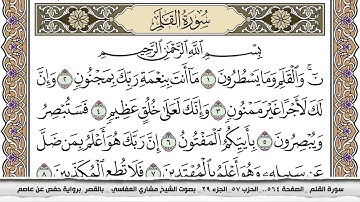 سورة القلم
بِسْمِ اللَّهِ الرَّحْمَٰنِ الرَّحِيمِ
نٓ ۚ وَالْقَلَمِ وَمَا يَسْطُرُونَ ١ مَا أَنتَ بِنِعْمَةِ رَبِّكَ بِمَجْنُونٍ ٢ وَإِنَّ
لَكَ لَأَجْرًا غَيْرَ مَمْنُونٍ ٣ وَإِنَّكَ لَعَلَىٰ خُلُقٍ عَظِيمٍ ٤ فَسَتُبْصِرُ
وَيُبْصِرُونَ ٥ بِأَييِّكُمُ الْمَفْتُونُ ٦ إِنَّ رَبَّكَ هُوَ أَعْلَمُ بِمَن ضَلَّ
عَن سَبِيلِهِ وَهُوَ أَعْلَمُ بِالْمُهْتَدِينَ ٧ فَلَا تُطِعِ الْمُكَذِّبِينَ ٨
سورة القلم . الصفحة ٥٦٤.. الحزب ٥٧ . الجزء ٢٩ . بصوت الشيخ مشاري العفاسي . بالقصر برواية حفص عن عاصم